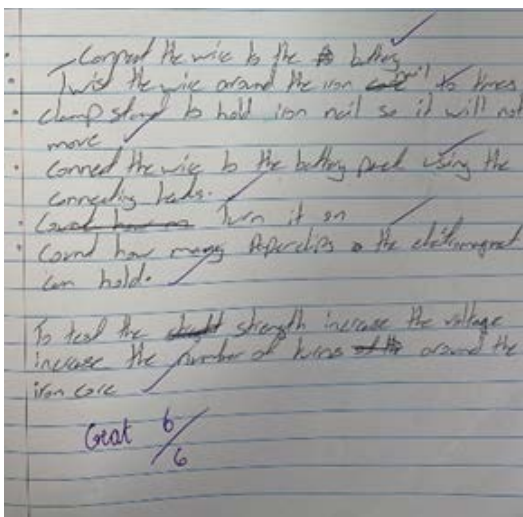 Connect the wire to the battery
Twist the wire around the iron nail 10 times
clamp stand to hold iron nail so it will not
move
Connect the wire to the battery pack using the
connecting leads.
Turn it on
Count how many Paperclips the electromagnet
can hold.
To test the strength increase the voltage
increase the number of turns around the
iron core
Great 6/6